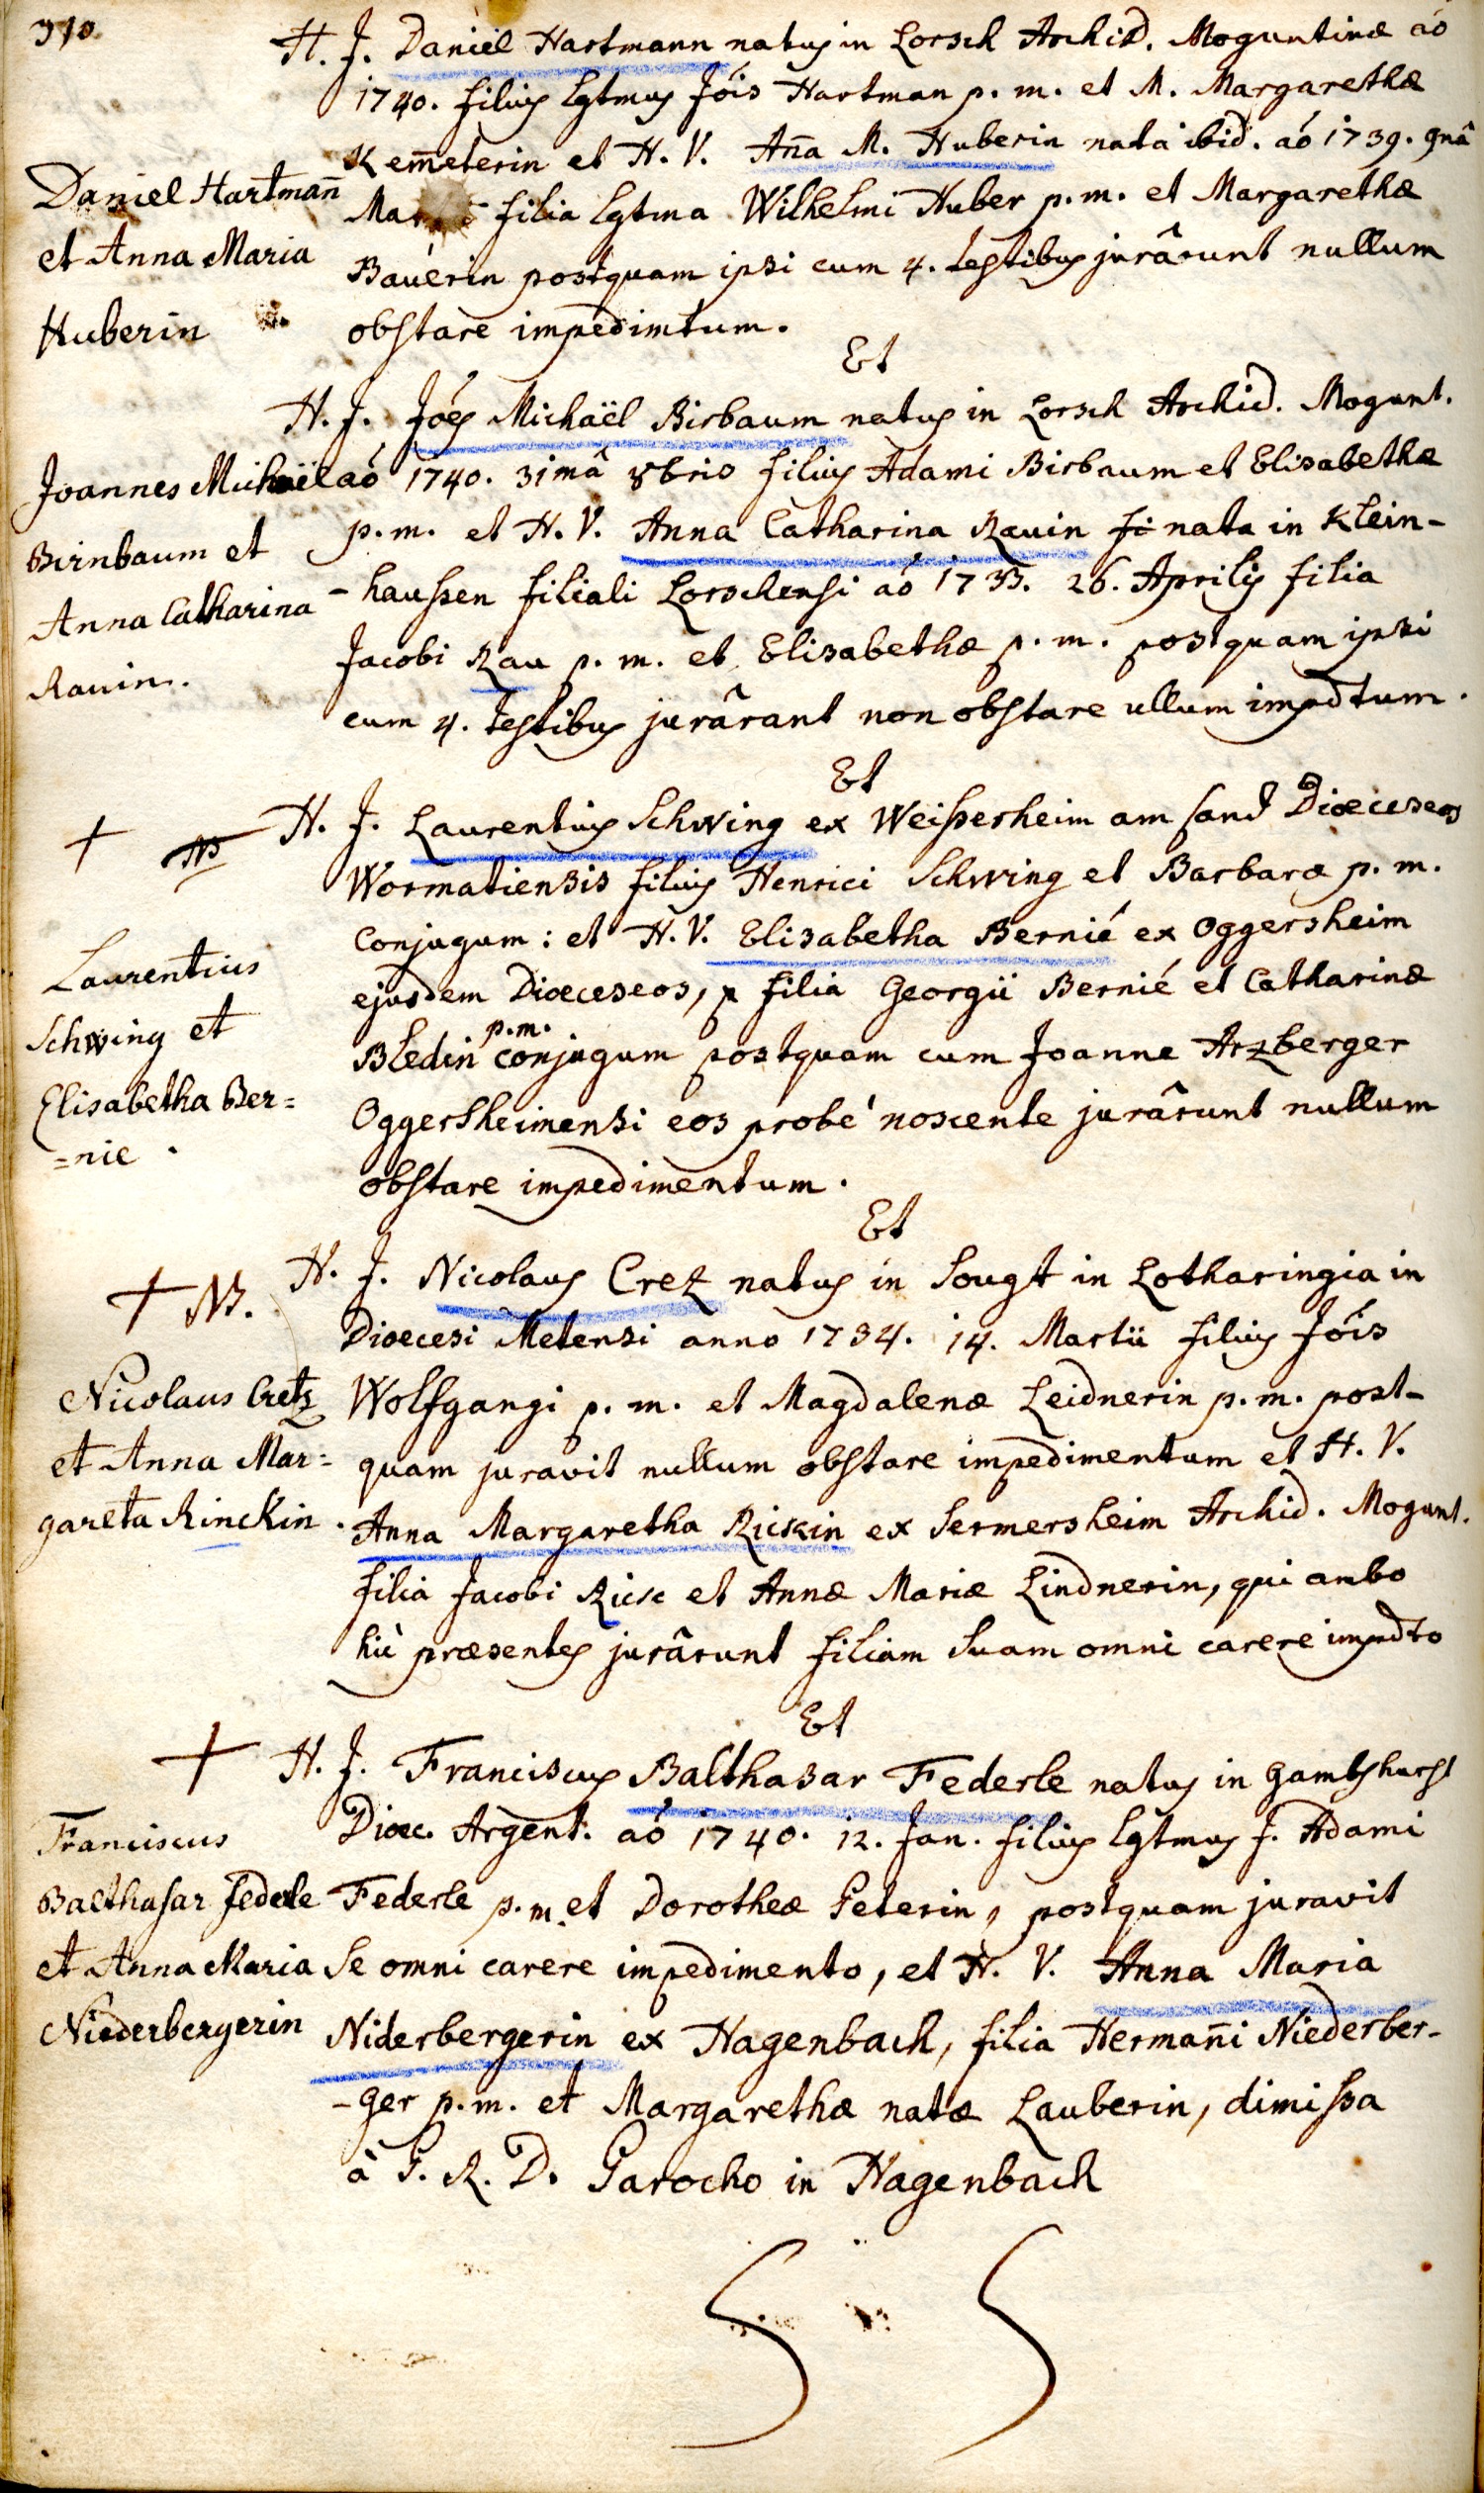 310.
H. J. Daniël Hartmann natus in Lorsch Archid. Moguntinæ aó
1740. filius lgtmus Jóis Hartman p. m. et M. Margarethæ
Kem̄eterin et H. V. An̄a M. Huberin nata ibid. aó 1739. 9nâ
filia lgtma Wilhelmi Huber p. m. et Margarethæ
Bauerin postquam ipsi cum 4. testibus jurârunt nullum
obstare impedimtum.
Daniel Hartman̄
et Anna Maria
Huberin
Et
H. J. Jóes Michaël Birbaum natus in Lorsch Archid. Mogunt.
aó 1740. 31mâ 8bris filius Adami Birbaum et Elisabethæ
p. m. et H. V. Anna Catharina Rauin fi nata in Klein-
-haussen filiali Lorschensi aó 1733. 26. Aprilis filia
Jacobi Rau p. m. et Elisabethæ p. m. postquam ipsi
cum 4. testibus jurârant non obstare ullum impdtum.
Joannes Michaël
Birnbaum et
Anna Catharina
Rauin.
Et
+ NB
H. J. Laurentius Schwing ex Weisserheim am sand Dioeceseos
Wormatiensis filius Henrici Schwing et Barbaræ p. m.
Conjugum: et H. V. Elisabetha Bernié ex Oggersheim
ejusdem Dioeceseos, filia Georgii Bernié et Catharinæ
Bledin p. m. conjugum postquam cum Joanne Arzberger
Oggersheimensi eos probé noscente jurârunt nullum
obstare impedimentum.
Laurentius
Schwing et
Elisabetha Ber=
=nie.
Et
+ NB.
H. J. Nicolaus Crez natus in Sougt in Lotharingia in
Dioecesi Metensi anno 1734. 14. Martii filius Jóis
Wolfgangi p. m. et Magdalenæ Leidnerin p. m. post-
quam juravit nullum obstare impedimentum et H. V.
Anna Margaretha Rickin ex Sermersheim Archid. Mogunt.
filia Jacobi Rick et Annæ Mariæ Lindnerin, qui ambo
hic præsentes jurârunt filiam suam omni carere impdto
Nicolaus Cretz
et Anna Mar=
gareta Rinckin.
Et
+
H. J. Franciscus Balthasar Federle natus in Gambshurst
Dioec. Argent. aó 1740. 12. Jan. filius lgtmus J. Adami
Federle p. m. et Dorotheæ Peterin, postquam juravit
se omni carere impedimento, et H. V. Anna Maria
Niderbergerin ex Hagenbach, filia Herman̄i Niederber-
-ger p. m. et Margarethæ natæ Lauberin, dimissa
à P. R. D. Parocho in Hagenbach
Franciscus
Balthasar Federle
et Anna Maria
Niederbergerin